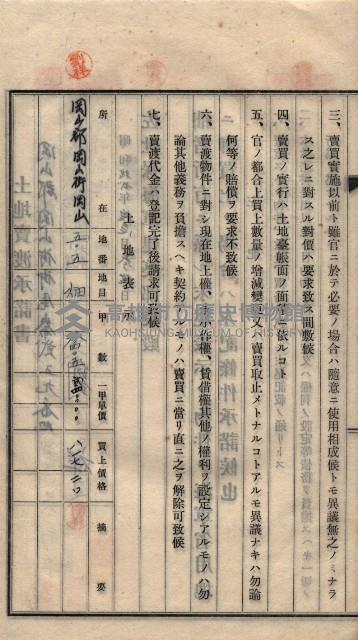 三、賣買實施以前ト雖官ニ於テ必要ノ場合ハ隨意ニ使用相成候トモ異議無之ノミナラ
ス之レニ對スル對價ハ要求致ス間敷候
四、賣買ノ實行ハ土地臺帳面ノ面積ニ依ルコト
五、官ノ都合上買上數量ノ增減變更又ハ賣買取止メトナルコトアルモ異議ナキハ勿論
何等ノ賠償ヲ要求不致候
六、賣渡物件ニ對シ現在地上權、永小作權、賃借權其他ノ權利ヲ設定シアルモノハ勿
論其他義務ヲ負擔スヘキ契約アルモノハ賣買ニ當リ直ニ之ヲ解除可致候
七、賣渡代金ハ登記完了後請求可致候
土地表示
所在 地番 地目 甲數 一甲單價 買上價格 摘要
岡山郡岡山街岡山 五、五 畑
計
高雄市立歷史博物館
KAOHSIUNG MUSEUM OF HISTORY
土地賣渡承諾書